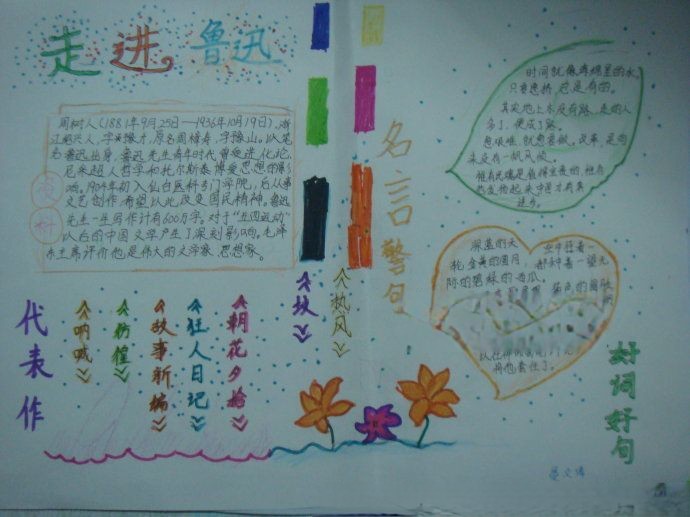 走进鲁迅
周树人(1881年9月25日—1936年10月19日),浙
江绍兴人,字豫才,原名周樟寿,字豫山。以笔
名鲁迅出身。鲁迅先生青年时代曾受进化论,
尼采超人哲学和托尔斯泰博爱思想的影
响。1904年初入仙台医科专门学院,后从事
文艺创作希望以此改变国民精神。鲁迅
先生一生写作计有600万字。对于“五四运动”
以后的中国文学产生了深刻影响。毛泽
东主席评价他是伟大的文学家 思想家。
资料
代表作
《呐喊》
《彷徨》
《故事新编》
《狂人日记》
《朝花夕拾》
《坟》
《热风》
名言警句
时间就像海绵里的水,
只要愿挤,总是有的。
其实地上本没有路,走的人
多了,便成了路。
改革,是向
来没有一帆风顺。
惟有民魂是值得宝贵的,惟有
他发扬起来中国才有真
进步。
深蓝的天
轮金黄的圆月,
际的碧绿的西瓜
好词好句